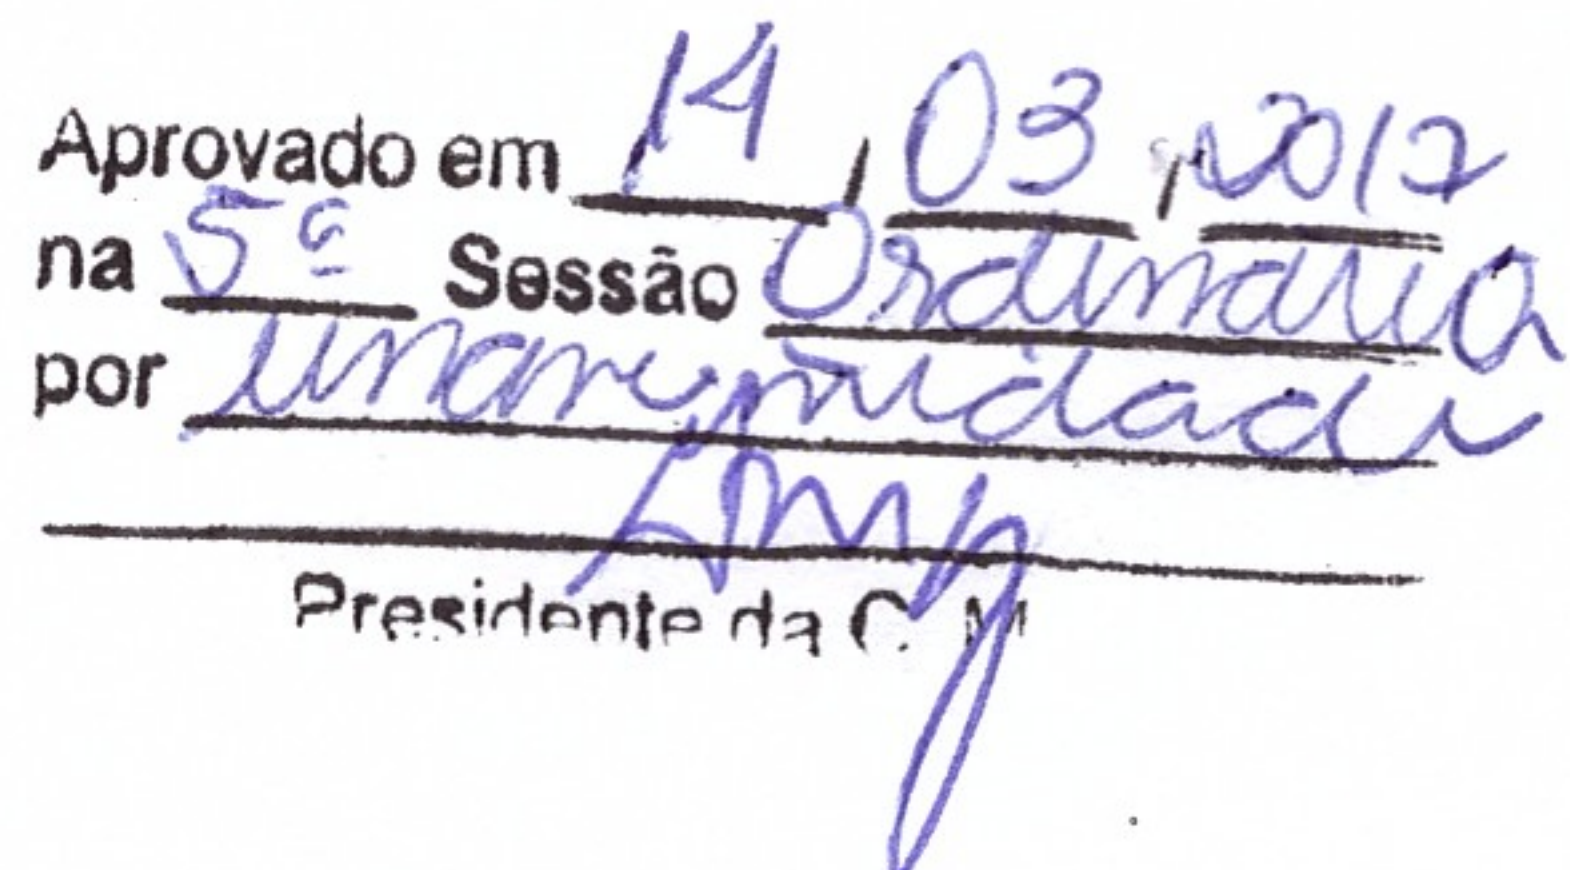 Aprovado em 14/03/2017
na 5ª Sessão Ordinária
por unanimidade
Presidente da C. M